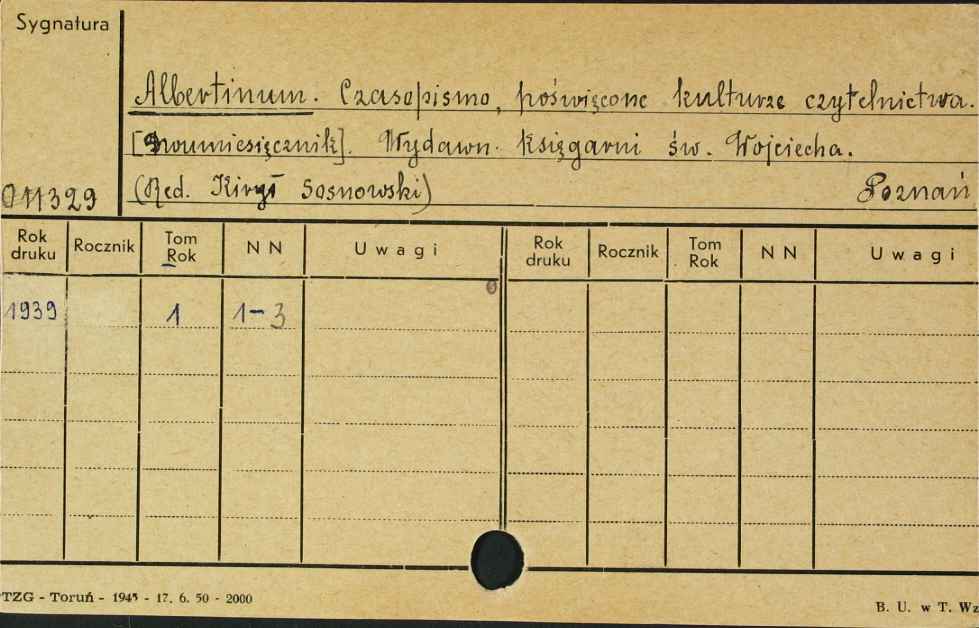 Sygnatura
Albertinum. Czasopismo, poświęcone kulturze czytelnictwa.
[Dwumiesięcznik]. Wydawn. Księgarni św. Wojciecha.
011329 (Red. Kirył Sosnowski) Poznań
Rok druku Rocznik Tom Rok N N Uwagi Rok druku Rocznik Tom Rok N N Uwagi
1939 1 1-3
TZG - Toruń - 1945 - 17. 6. 50 - 2000 B. U. w T. Wz